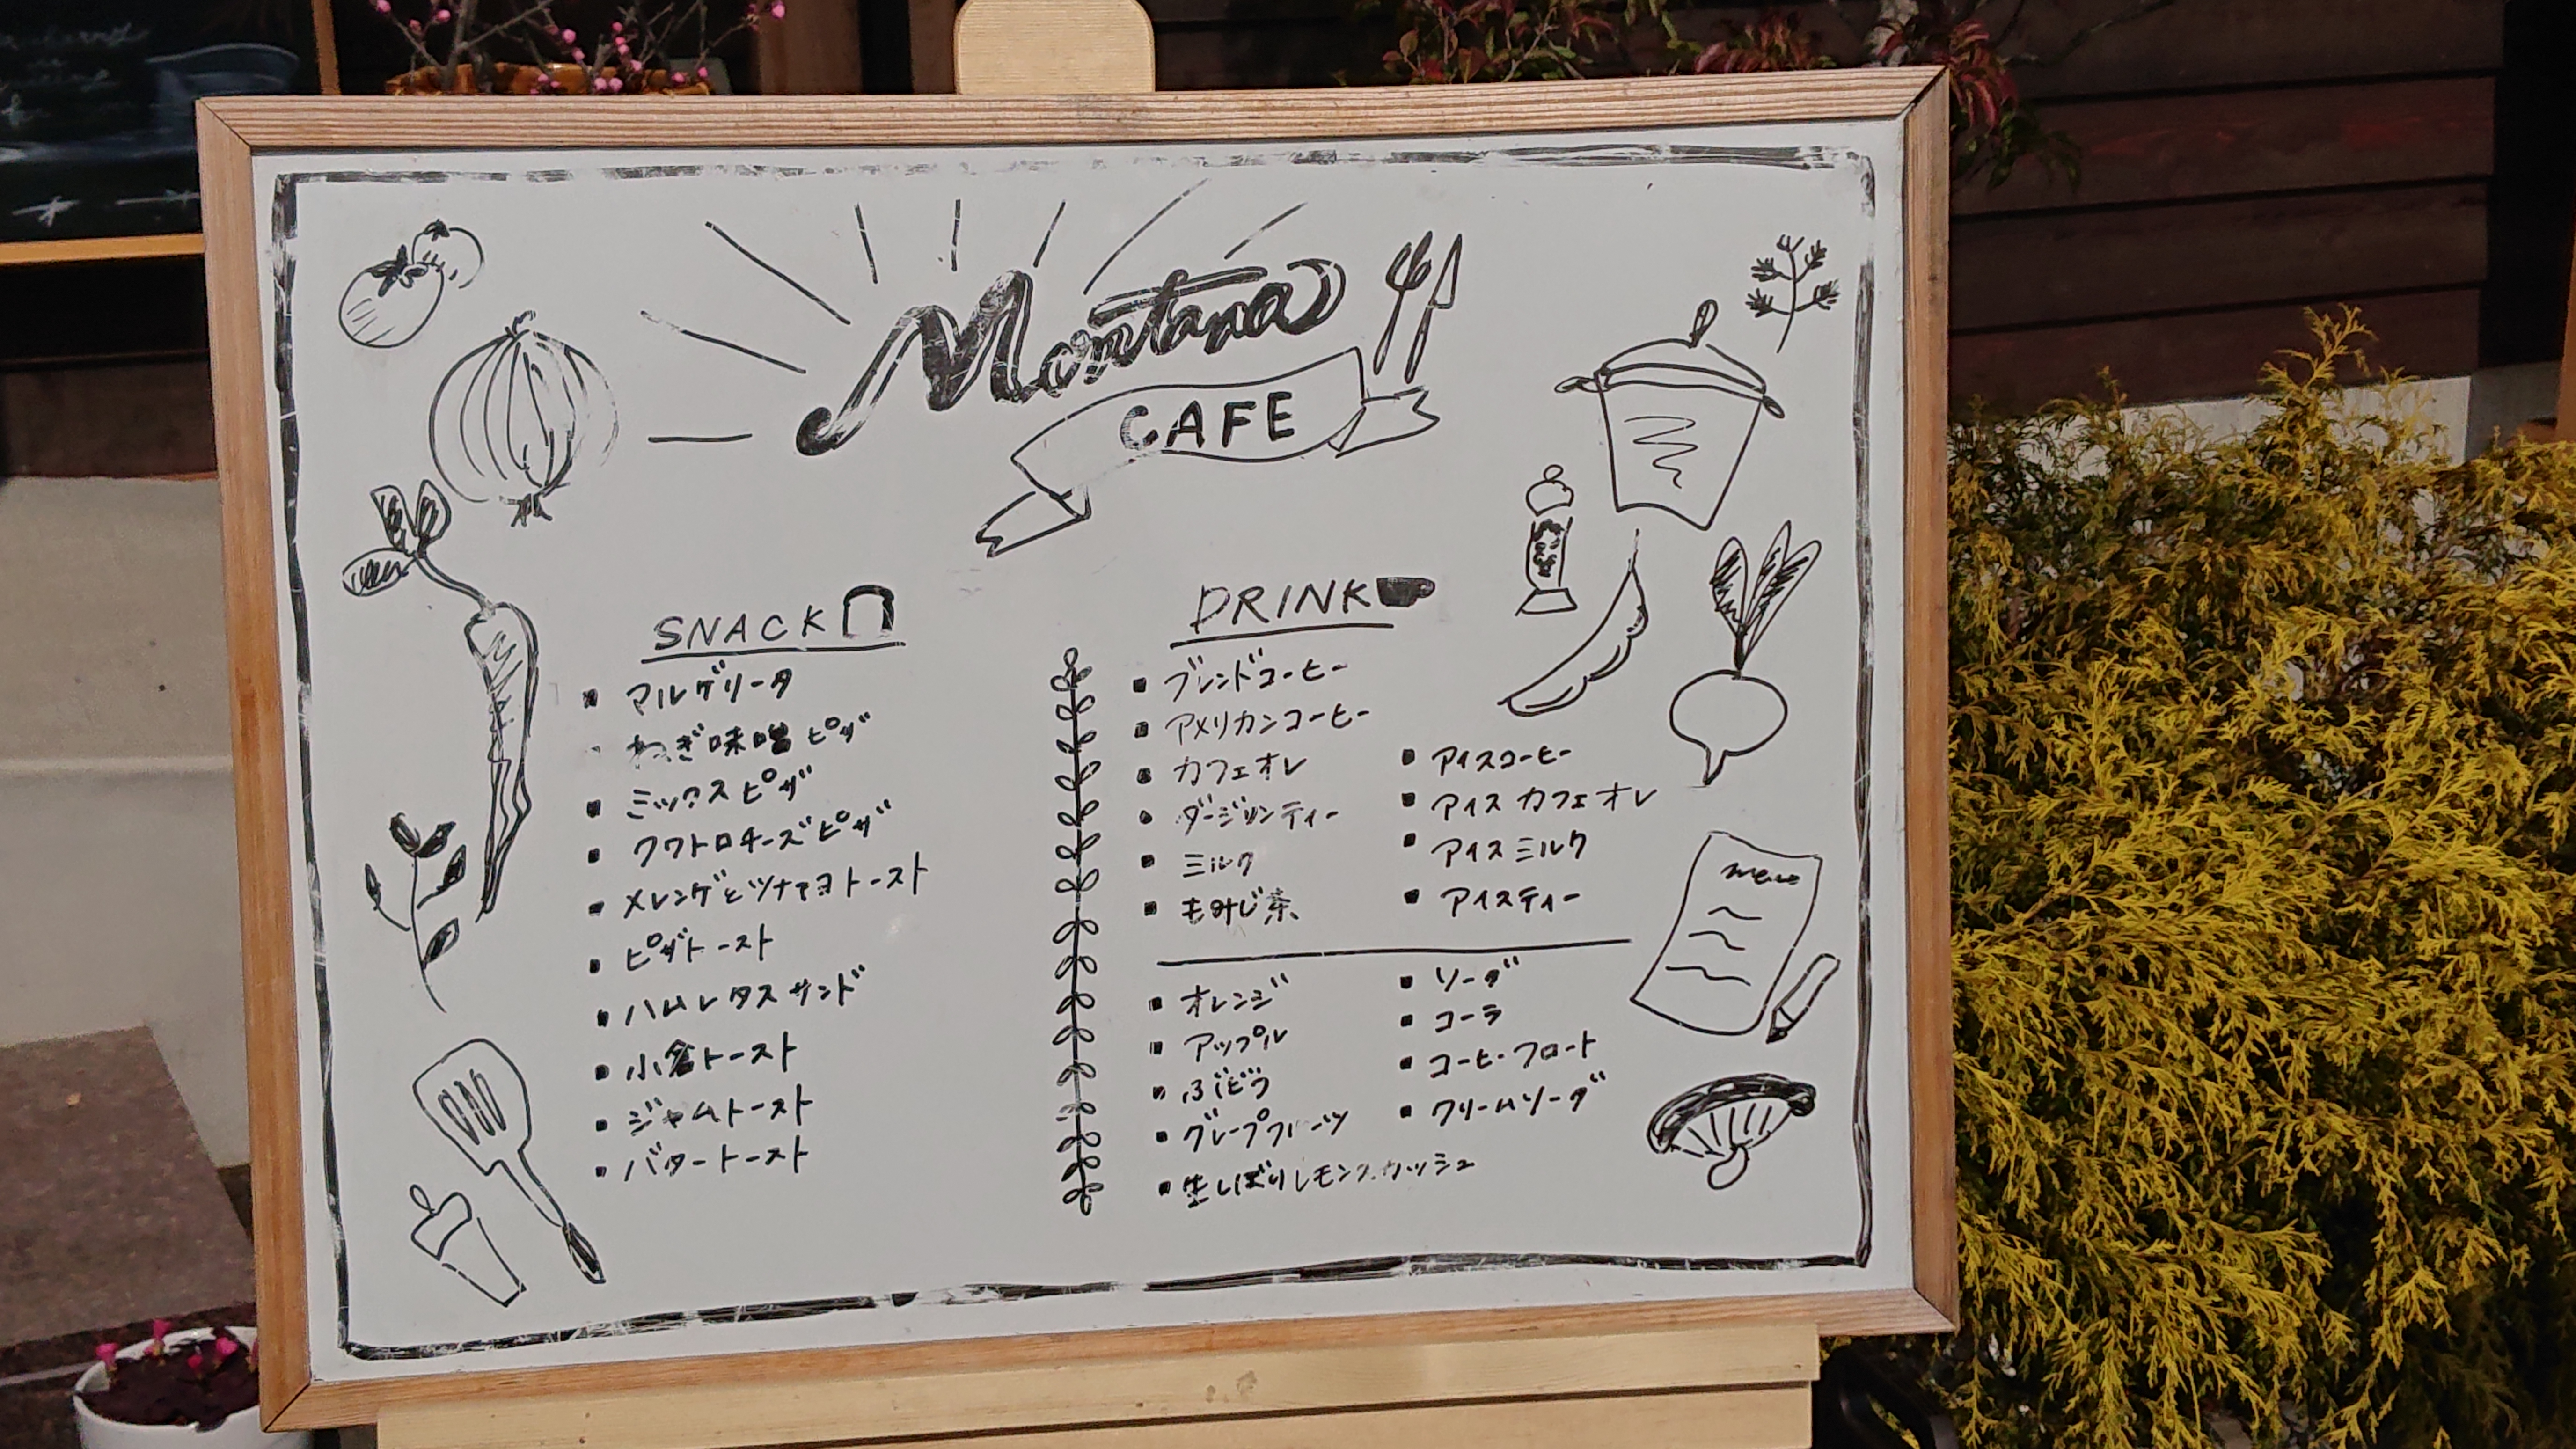 Montana
CAFE
SNACK
マルゲリータ
ねぎ味噌ピザ
ミックスピザ
クワトロチーズピザ
メレンゲとツナマヨトースト
ピザトースト
ハムレタスサンド
小倉トースト
ジャムトースト
バタートースト
DRINK
ブレンドコーヒー
アメリカンコーヒー
カフェオレ
ダージリンティー
ミルク
もみじ茶
アイスコーヒー
アイスカフェオレ
アイスミルク
アイスティー
オレンジ
アップル
ぶどう
グレープフルーツ
生しぼりレモンスカッシュ
ソーダ
コーラ
コーヒーフロート
クリームソーダ
menu